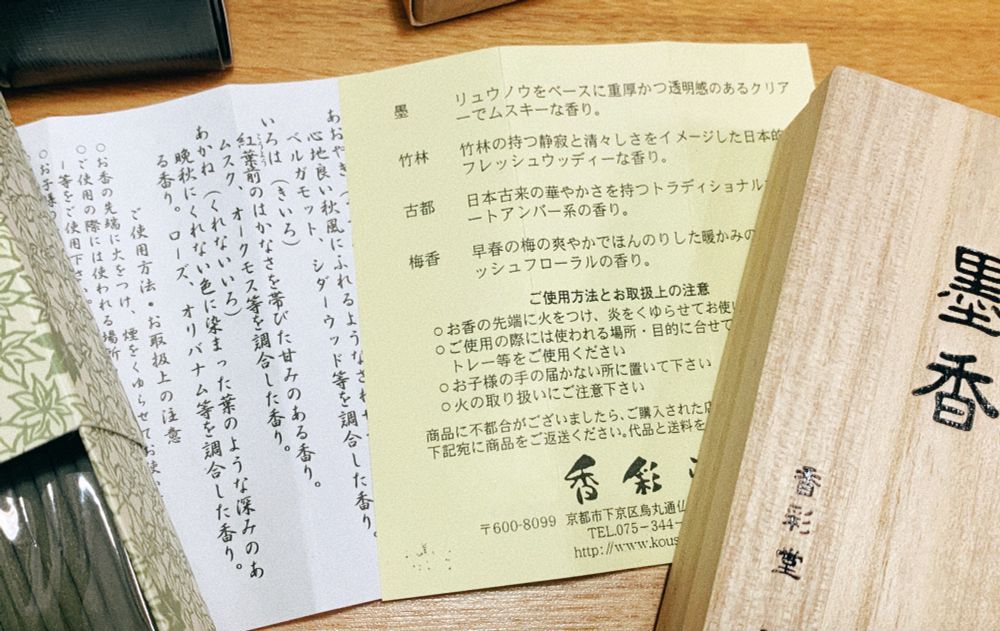 墨
リュウノウをベースに重厚かつ透明感のあるクリア
ーでムスキーな香り。
竹林
竹林の持つ静寂と清々しさをイメージした日本的
フレッシュウッディーな香り。
古都
日本古来の華やかさを持つトラディショナル
ートアンバー系の香り。
梅香
早春の梅の爽やかでほんのりした暖かみの
ッシュフローラルの香り。
ご使用方法とお取扱上の注意
○お香の先端に火をつけ、炎をくゆらせてお使い
○ご使用の際には使われる場所・目的に合せて
トレー等をご使用ください
○お子様の手の届かない所に置いて下さい
○火の取り扱いにご注意下さい
商品に不都合がございましたら、ご購入された店
下記宛に商品をご返送ください。代品と送料を
香彩
〒600-8099 京都市下京区烏丸通仏
TEL.075-344-
http://www.kous
あおやぎ
心地良い秋風にふれるような
ベルガモット、シダーウッド等を調合した香り。
いろは（きいろ）
紅葉前のはかなさを帯びた甘みのある香り。
ムスク、オークモス等を調合した香り。
あかね（くれないいろ）
晩秋にくれない色に染まった葉のような深みのあ
る香り。ローズ、オリバナム等を調合した香り。
ご使用方法・お取扱上の注意
○お香の先端に火をつけ、煙をくゆらせてお使い
○ご使用の際には使われる場所
ー等をご使用下さい。
○お子様の
墨香
香彩堂